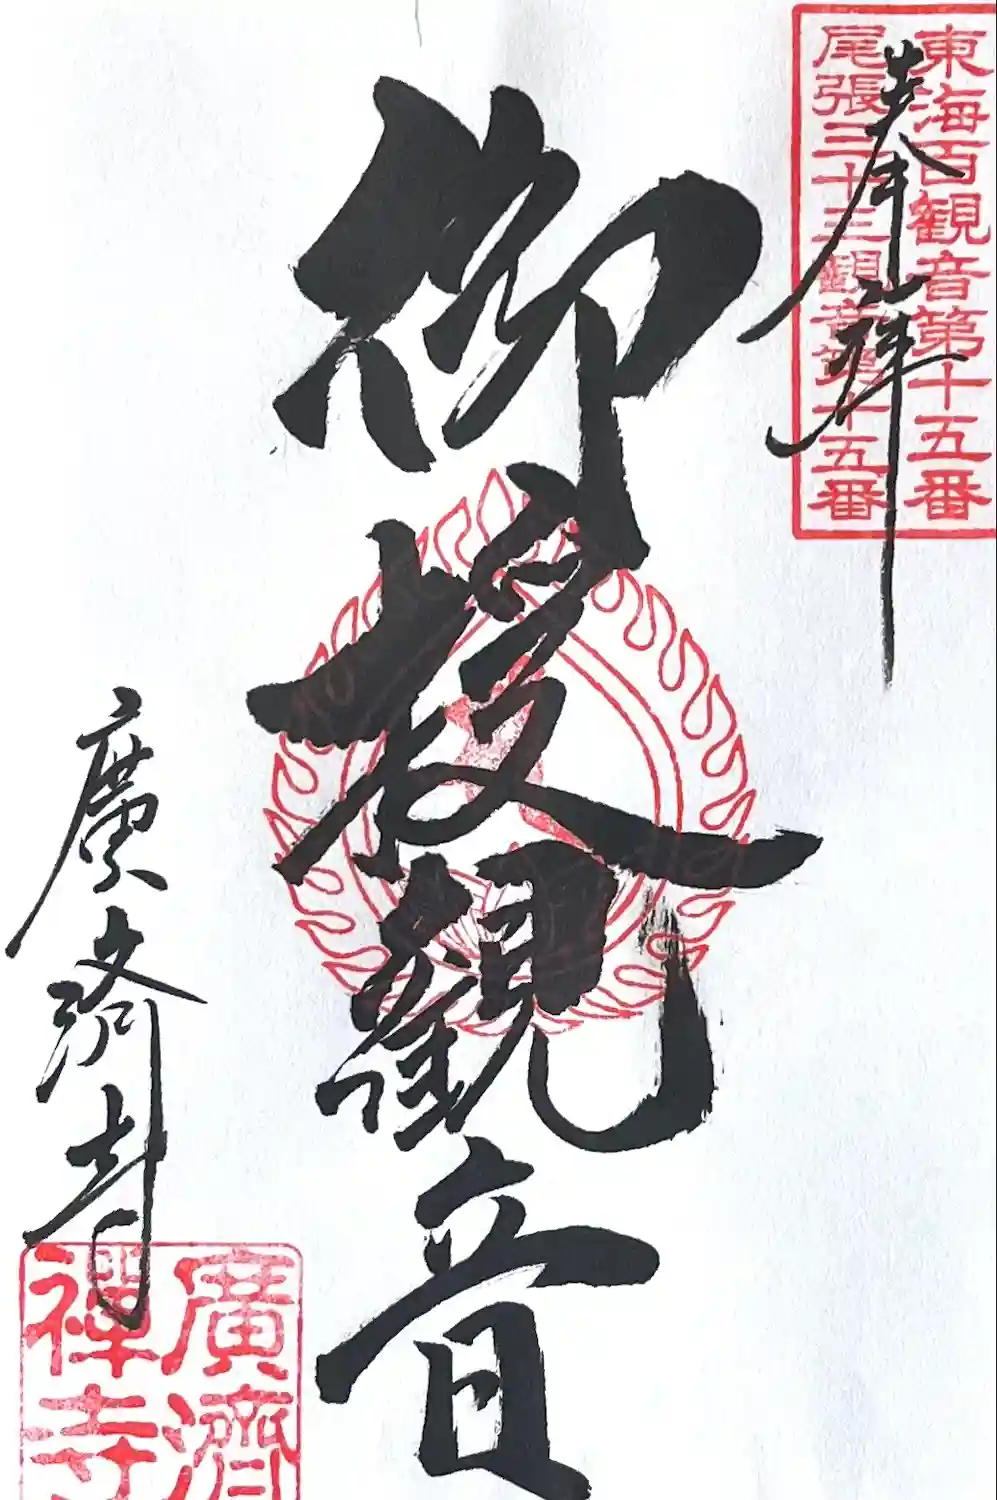 東海百観音第十五番
尾張三十三観音第十五番
奉拝
御授観音
廣済寺
廣濟
禅寺